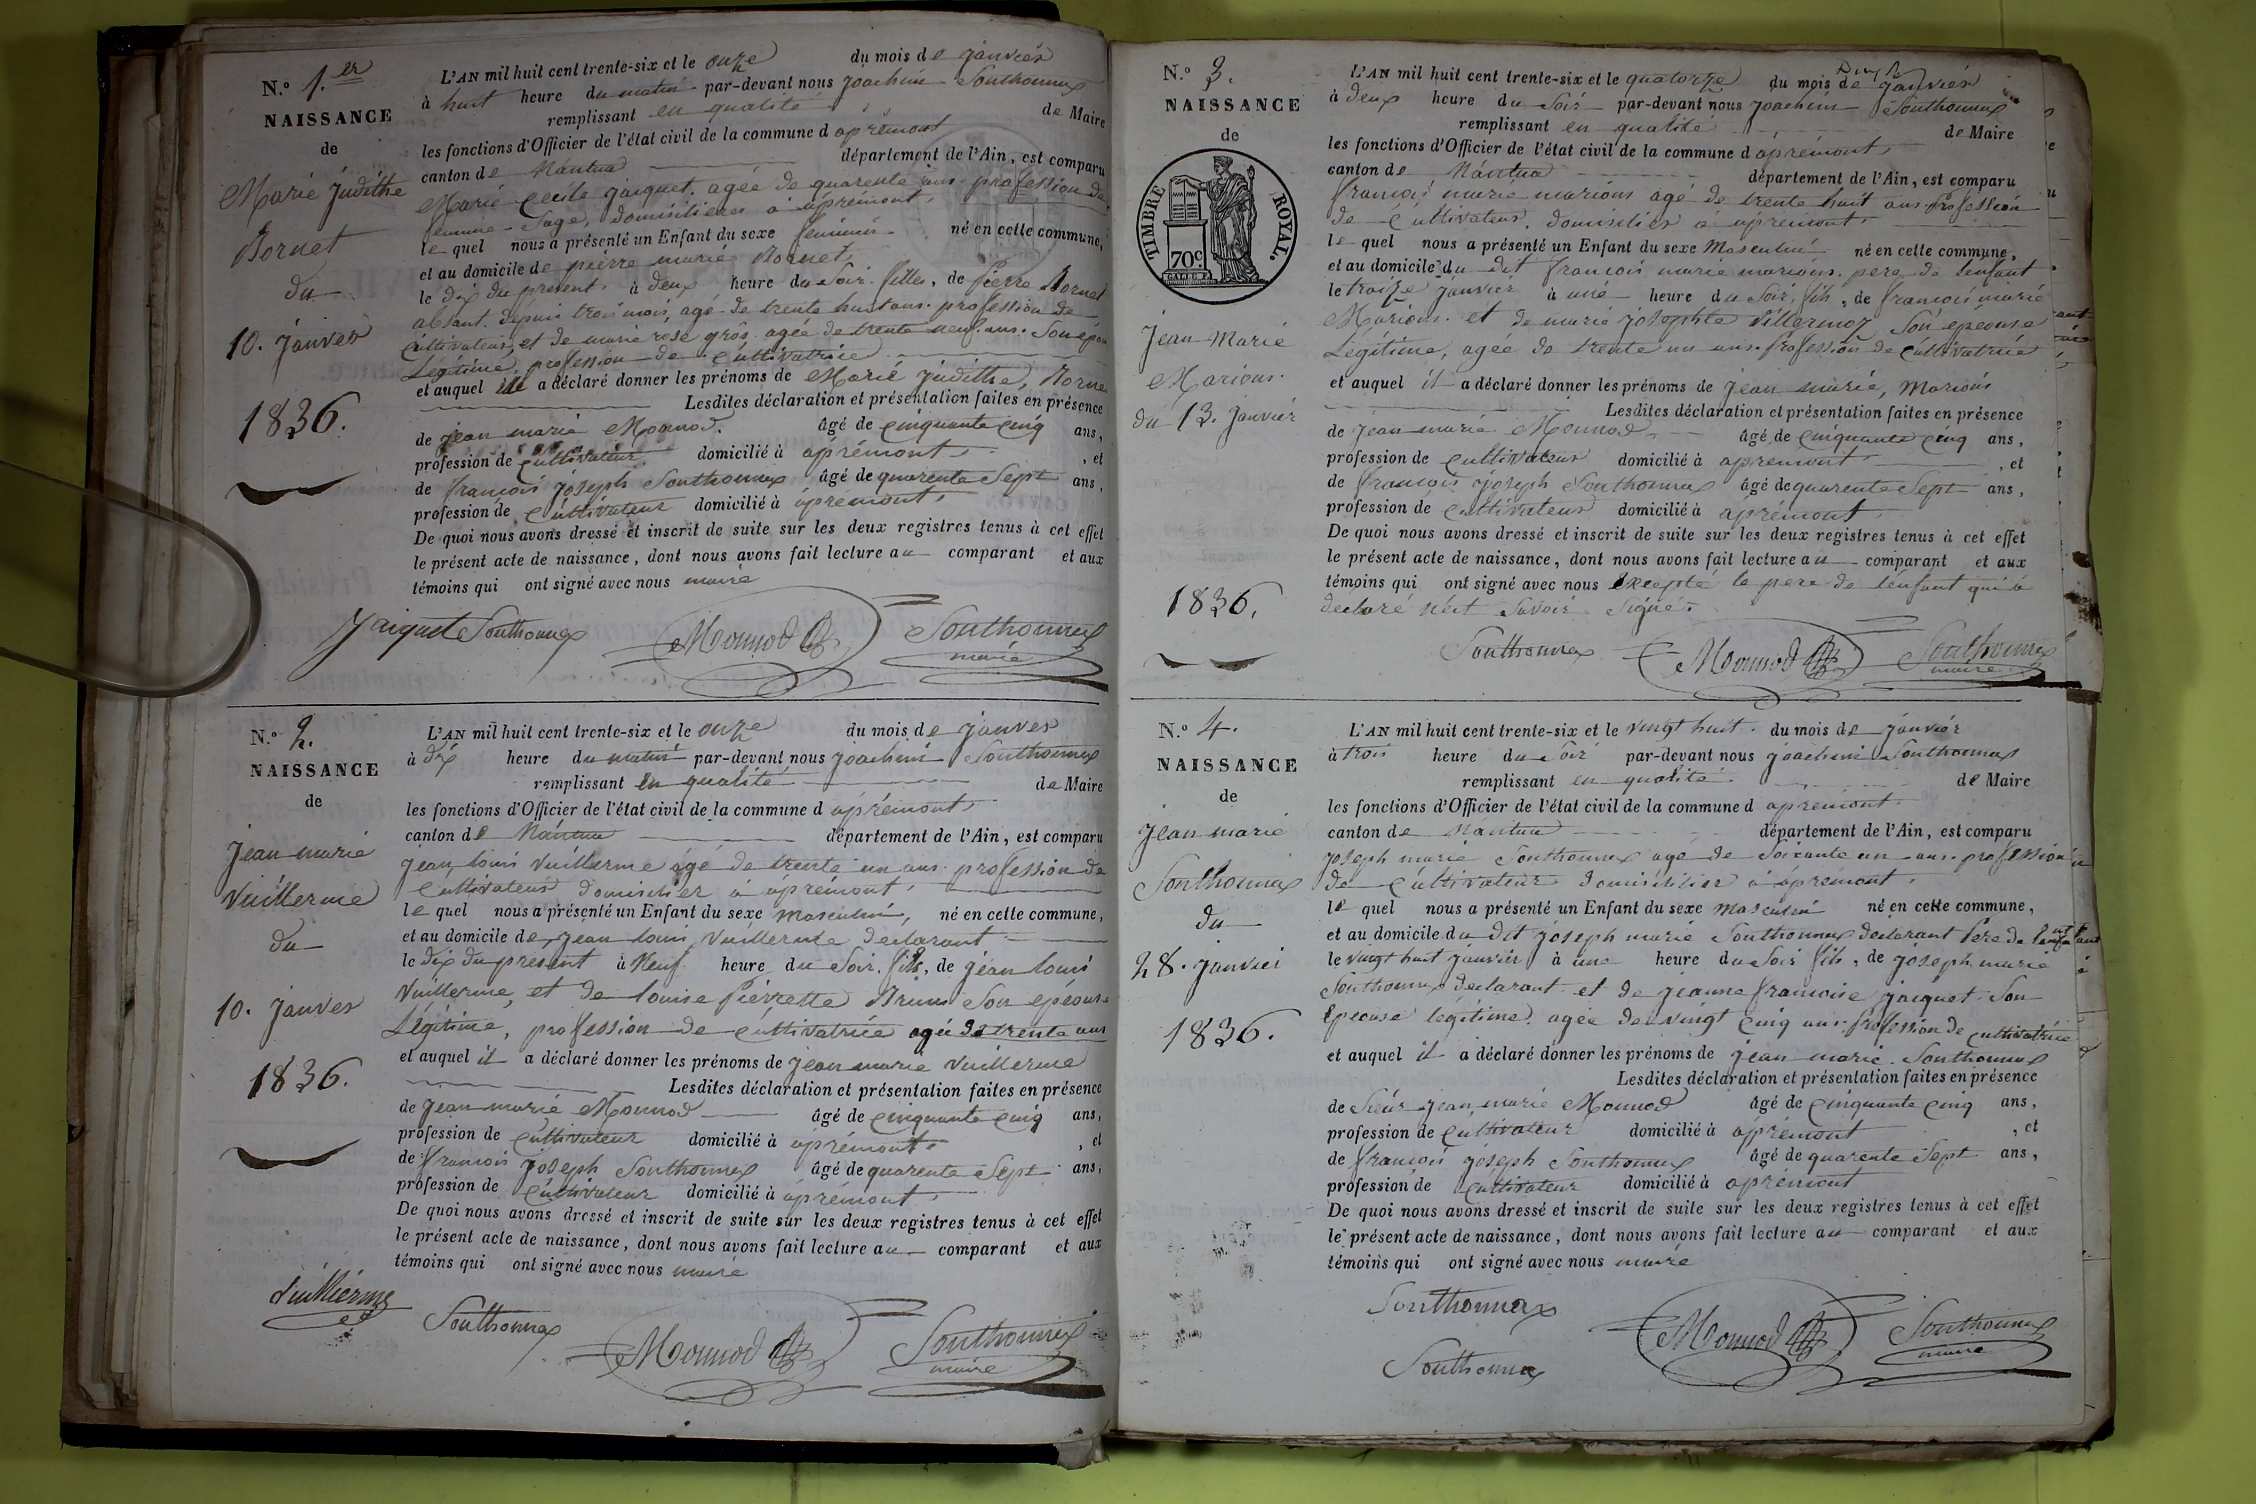 N.° 1.er
NAISSANCE
de
Marie Judithe
Bornet
du
10. janvier
1836.
L'AN mil huit cent trente-six et le onze du mois de janvier
à huit heure du matin par-devant nous joachim Sonthonnax
remplissant en qualité de Maire
les fonctions d'Officier de l'état civil de la commune d apremont
canton de Nantua département de l'Ain, est comparu
Marie Cecile jaiquet. agée de quarente ans. profession de
femme-Sage, domicilieres à apremont,
le quel nous a présenté un Enfant du sexe feminin né en cette commune,
et au domicile de pierre marie Bornet,
le dix du present à deux heure du Soir. filles, de Pierre Bornet
absant. depuis trois mois, agé de trente huit ans. profession de
Cultivateur, et de marie rose gros. agée de trente neuf ans. Son épou
Légitime, profession de Cultivatrice
et auquel elle a déclaré donner les prénoms de Marie Judithe, Borne
Lesdites déclaration et présentation faites en présence
de jean marie Mounod. âgé de cinquante cinq ans,
profession de Cultivateur domicilié à apremont , et
de francois joseph Sonthonnax âgé de quarente Sept ans,
profession de Cultivateur domicilié à apremont,
De quoi nous avons dressé et inscrit de suite sur les deux registres tenus à cet effet
le présent acte de naissance, dont nous avons fait lecture au comparant et aux
témoins qui ont signé avec nous maire
Jaiquet Sonthonnax Mounod Sonthonnax
maire
N.° 2.
NAISSANCE
de
Jean marie
Vuillerme
du
10. janvier
1836.
L'AN mil huit cent trente-six et le onze du mois de janvier
à dix heure du matin par-devant nous joachim Sonthonnax
remplissant en qualité de Maire
les fonctions d'Officier de l'état civil de la commune d apremont,
canton de Nantua département de l'Ain, est comparu
jean louis vuillerme agé de trente un ans. profession de
Cultivateur domicilier à apremont,
le quel nous a présenté un Enfant du sexe masculin, né en cette commune,
et au domicile de jean louis Vuillerme declarant
le dix du present à Neuf. heure du Soir. fils, de jean louis
Vuillerme, et de louise Pierrette Brun Son epouse
Légitime, profession de Cultivatrice agée de trente ans
et auquel il a déclaré donner les prénoms de jean marie vuillerme
Lesdites déclaration et présentation faites en présence
de jean marie Mounod âgé de cinquante cinq ans,
profession de Cultivateur domicilié à apremont , et
de francois joseph Sonthonnax âgé de quarente Sept ans,
profession de Cultivateur domicilié à apremont,
De quoi nous avons dressé et inscrit de suite sur les deux registres tenus à cet effet
le présent acte de naissance, dont nous avons fait lecture au comparant et aux
témoins qui ont signé avec nous maire
Vuillerme Sonthonnax Mounod Sonthonnax
maire
N.° 3.
NAISSANCE
de
TIMBRE ROYAL.
70c.
Jean Marie
Marions.
du 13. janvier
1836.
L'AN mil huit cent trente-six et le quatorze du mois de janvier
à deux heure du Soir par-devant nous joachim Sonthonnax
remplissant en qualité de Maire
les fonctions d'Officier de l'état civil de la commune d apremont,
canton de Nantua département de l'Ain, est comparu
francois marie marions agé de trente huit ans. profession
de Cultivateur. domicilier à apremont
le quel nous a présenté un Enfant du sexe Masculin né en cette commune,
et au domicile du dit francois marie marions. pere de lenfant
le traize janvier à une heure du Soir, fils, de francois marie
Marions. et de marie josephte Villermoz Son épeouse
Légitime, agée de trente un ans. profession de Cultivatrice
et auquel il a déclaré donner les prénoms de jean marie, Marions
Lesdites déclaration et présentation faites en présence
de jean marie Mounod âgé de cinquante cinq ans,
profession de Cultivateur domicilié à apremont , et
de francois joseph Sonthonnax âgé de quarente Sept ans,
profession de Cultivateur domicilié à apremont,
De quoi nous avons dressé et inscrit de suite sur les deux registres tenus à cet effet
le présent acte de naissance, dont nous avons fait lecture au comparant et aux
témoins qui ont signé avec nous Excepté le pere de lenfant qui a
declaré Savoir Signé.
Sonthonnax Mounod Sonthonnax
maire
N.° 4.
NAISSANCE
de
jean marie
Sonthonnax
du
28. janvier
1836.
L'AN mil huit cent trente-six et le vingt huit. du mois de janvier
à trois heure du Soir par-devant nous joachim Sonthonnax
remplissant en qualité de Maire
les fonctions d'Officier de l'état civil de la commune d apremont.
canton de Nantua département de l'Ain, est comparu
joseph marie Sonthonnax agé de Soixante un ans. profession
de Cultivateur domicilier à apremont,
le quel nous a présenté un Enfant du sexe masculin né en cette commune,
et au domicile du dit joseph marie Sonthonnax declarant Pere de lenfant
le vingt huit janvier à une heure du Soir fils, de joseph marie
Sonthonnax declarant. et de jeanne francoise jaiquet. Son
Epeouse legitime. agée de vingt cinq ans. profession de cultivatrice
et auquel il a déclaré donner les prénoms de jean marie. Sonthonnax
Lesdites déclaration et présentation faites en présence
de Sieur jean marie Mounod âgé de cinquante cinq ans,
profession de Cultivateur domicilié à apremont , et
de francois joseph Sonthonnax âgé de quarente Sept ans,
profession de Cultivateur domicilié à apremont
De quoi nous avons dressé et inscrit de suite sur les deux registres tenus à cet effet
le présent acte de naissance, dont nous avons fait lecture au comparant et aux
témoins qui ont signé avec nous maire
Sonthonnax Mounod Sonthonnax
maire
Sonthonnax